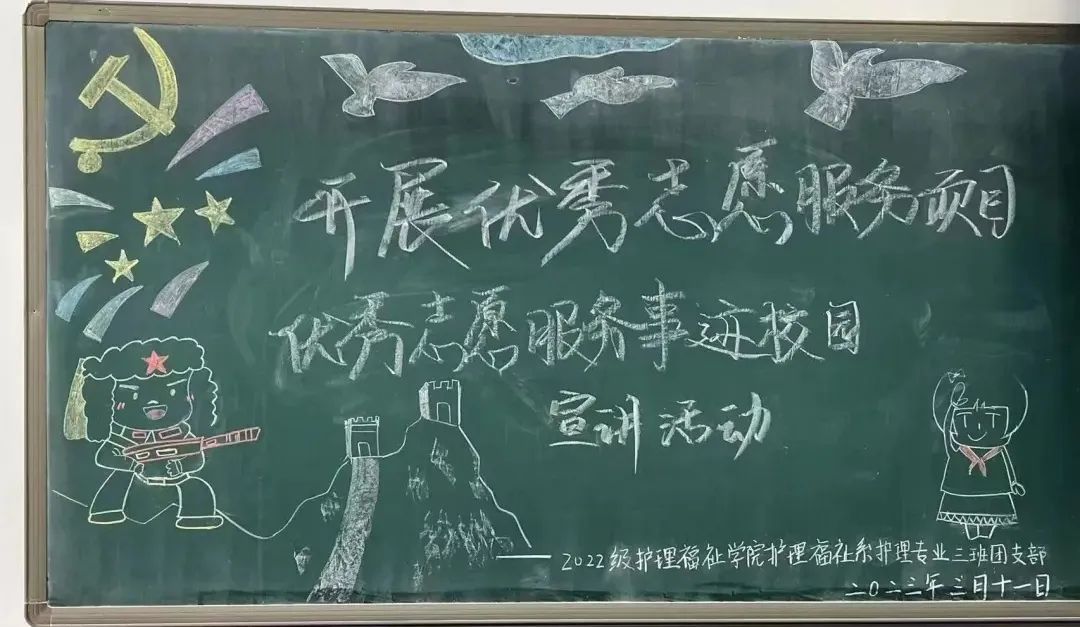 开展优秀志愿服务项目
优秀志愿服务事迹校园
宣讲活动
——2022级护理福祉学院护理福祉系护理专业三班团支部
二〇二三年三月十一日